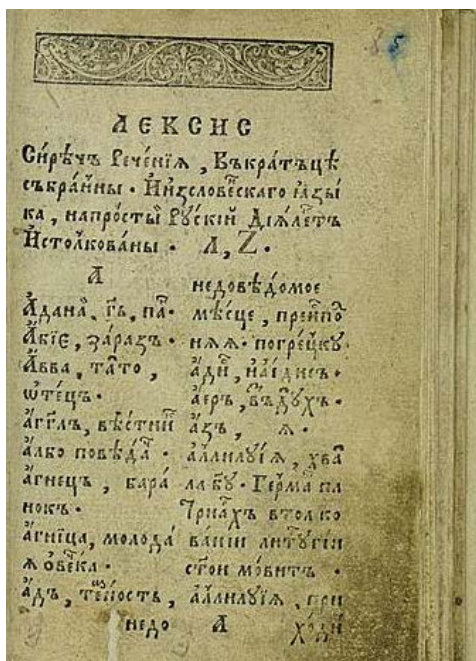 ЛЕКСИС
Сирѣчъ Реченїѧ, Въкратъцѣ
събранны. Ꙗ Изсловенскаго ꙗзы
ка, напросты Рускїй Дїѧлетъ
Истолкованы. А, Z.
А
Адана, гь, па.
Абїе, заразъ.
Авва, тато,
ѡтецъ.
аггль, вѣстни
албо повѣда.
агнецъ, бара
нокъ.
агница, молода
ѧ овечка.
адъ, темность,
недо
недовѣдомое
мѣсце, преиспо
нѧѧ. погрецку.
ади, наидись.
аеръ, въдухъ.
азъ, ѧ.
аллилуїѧ, хва
ла бу. Герма па
трїахъ втолко
ванїи литургїи
стои мовитъ.
аллилуїѧ, при
А
ходи
85